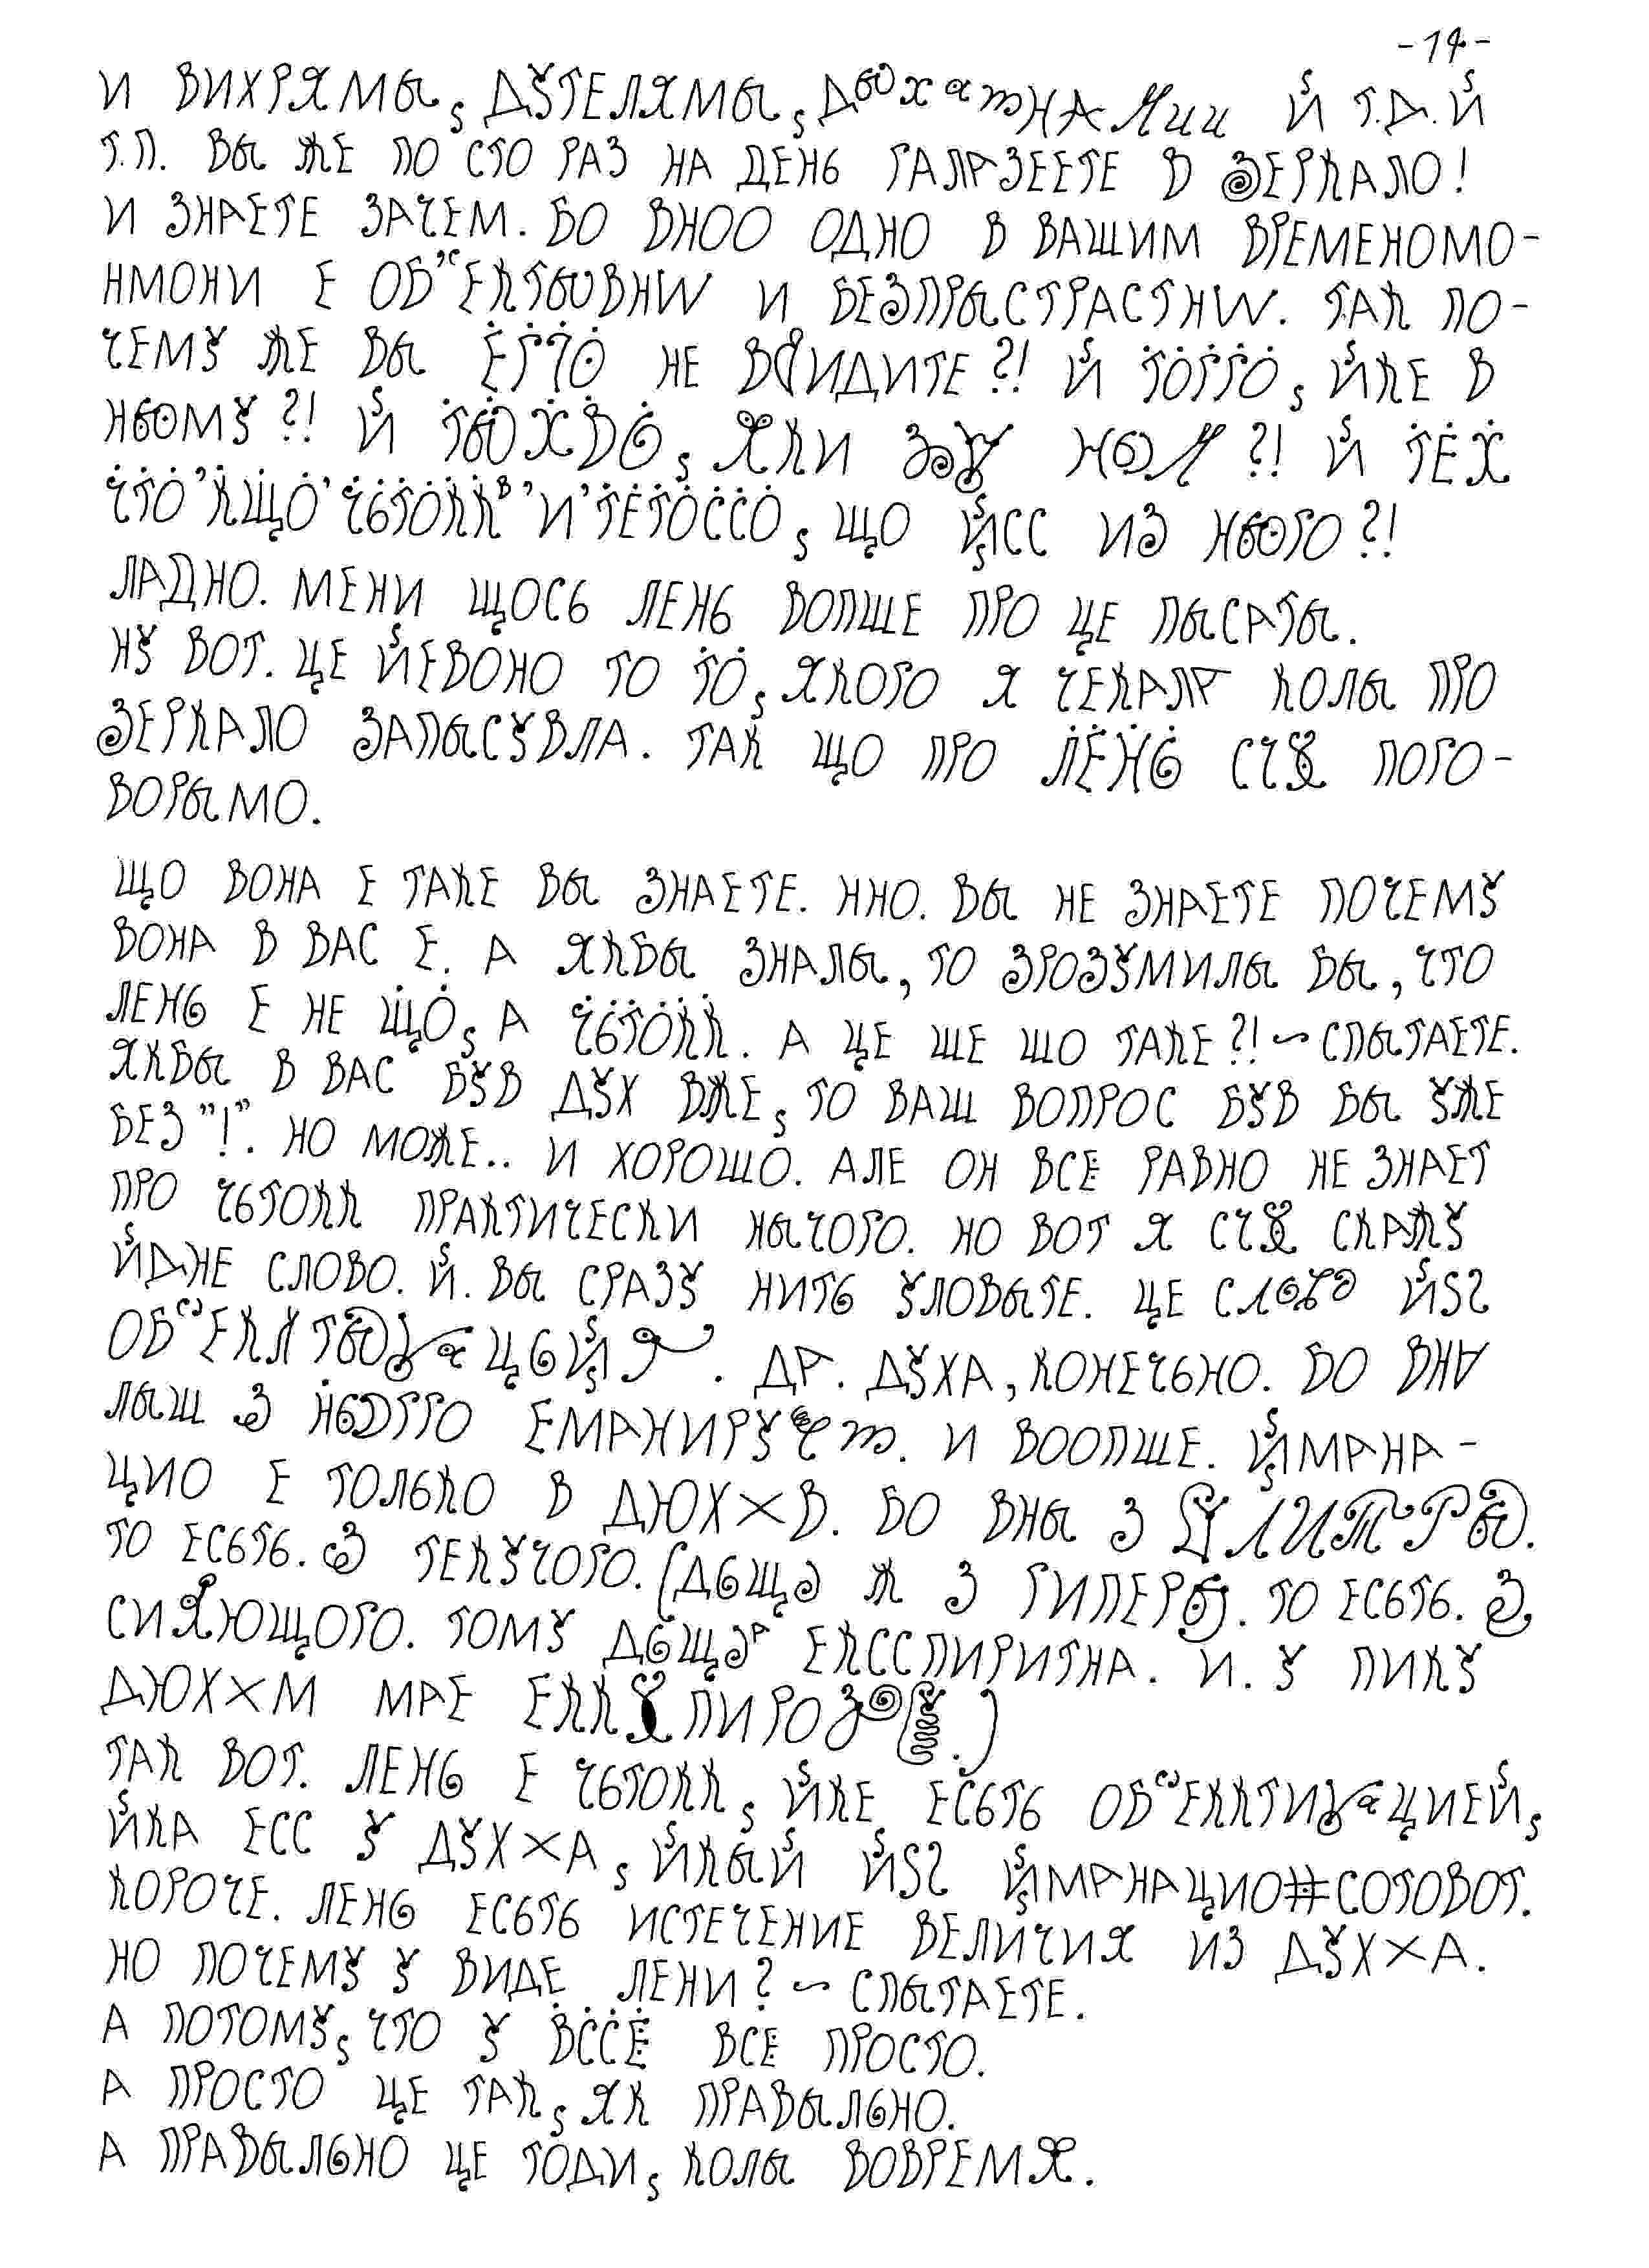 -14-
И ВИХРЯМЫ, ДУТЕЛЯМЫ, Й Т.Д. Й
Т.П. ВЫ ЖЕ ПО СТО РАЗ НА ДЕНЬ ГАЛРЗЕЕТЕ В ЗЕРКАЛО!
И ЗНАЕТЕ ЗАЧЕМ. БО ВНОО ОДНО В ВАШИМ ВРЕМЕНОМО-
НМОНИ Е И БЕЗПРЫСТРАСТНW. ТАК ПО-
ЧЕМУ ЖЕ ВЫ НЕ ?! Й ЙКЕ В
НЬОМУ?! Й ЯКИ ?! Й
ЩО ЙСС ИЗ НЬОГО?!
ЛАДНО. МЕНИ ЩОСЬ ЛЕНЬ ВОПШЕ ПРО ЦЕ ПЫСАТЫ.
НУ ВОТ. ЦЕ ЙЕВОНО ТО ТО, ЯКОГО Я ЧЕКАЛР КОЛЫ ПРО
ЗЕРКАЛО ЗАПЫСУВЛА. ТАК ЩО ПРО ЛЕНЬ ПОГО-
ВОРЫМО.
ЩО ВОНА Е ТАКЕ ВЫ ЗНАЕТЕ. ННО. ВЫ НЕ ЗНАЕТЕ ПОЧЕМУ
ВОНА В ВАС Е. А ЯКБЫ ЗНАЛЫ, ТО ЗРОЗУМИЛЫ БЫ, ЧТО
ЛЕНЬ Е НЕ ЩО, А ЧЬТОКК. А ЦЕ ШЕ ШО ТАКЕ?! ~ СПЫТАЕТЕ.
ЯКБЫ В ВАС БУВ ДУХ ВЖЕ, ТО ВАШ ВОПРОС БУВ БЫ УЖЕ
БЕЗ "!". НО МОЖЕ.. И ХОРОШО. АЛЕ ОН ВСЕ РАВНО НЕ ЗНАЕТ
ПРО ЧЬТОКК ПРАКТИЧЕСКИ НЫЧОГО. НО ВОТ Я СКАЖУ
ЙДНЕ СЛОВО. Й. ВЫ СРАЗУ НИТЬ УЛОВЫТЕ. ЦЕ СЛОВО
ДР. ДУХА, КОНЕЧЬНО. БО ВНА
ЛЫШ З ЕМАНИРУЕТ. И ВООПШЕ. ЙМАНА-
ЦИО Е ТОЛЬКО В ДЮХ×В. БО ВНЫ З
ТО ЕСЬТЬ. З ТЕКУЧОГО. (ДЬЩО Ж З ТО ЕСЬТЬ. З
СИЯЮЩОГО. ТОМУ ЕКССПИРИТНА. И. У ПИКУ
ДЮХ×М МАЕ
ТАК ВОТ. ЛЕНЬ Е ЧЬТОКК, ЙКЕ ЕСЬТЬ
ЙКА ЕСС У ДУХ×А, ЙКЫЙ ЙМАНАЦИО#СОТОВОТ.
КОРОЧЕ. ЛЕНЬ ЕСЬТЬ ИСТЕЧЕНИЕ ВЕЛИЧИЯ ИЗ ДУХ×А.
НО ПОЧЕМУ У ВИДЕ ЛЕНИ? ~ СПЫТАЕТЕ.
А ПОТОМУ, ЧТО У ВССЕ ВСЕ ПРОСТО.
А ПРОСТО ЦЕ ТАК, ЯК ПРАВЫЛЬНО.
А ПРАВЫЛЬНО ЦЕ ТОДИ, КОЛЫ ВОВРЕМЯ.